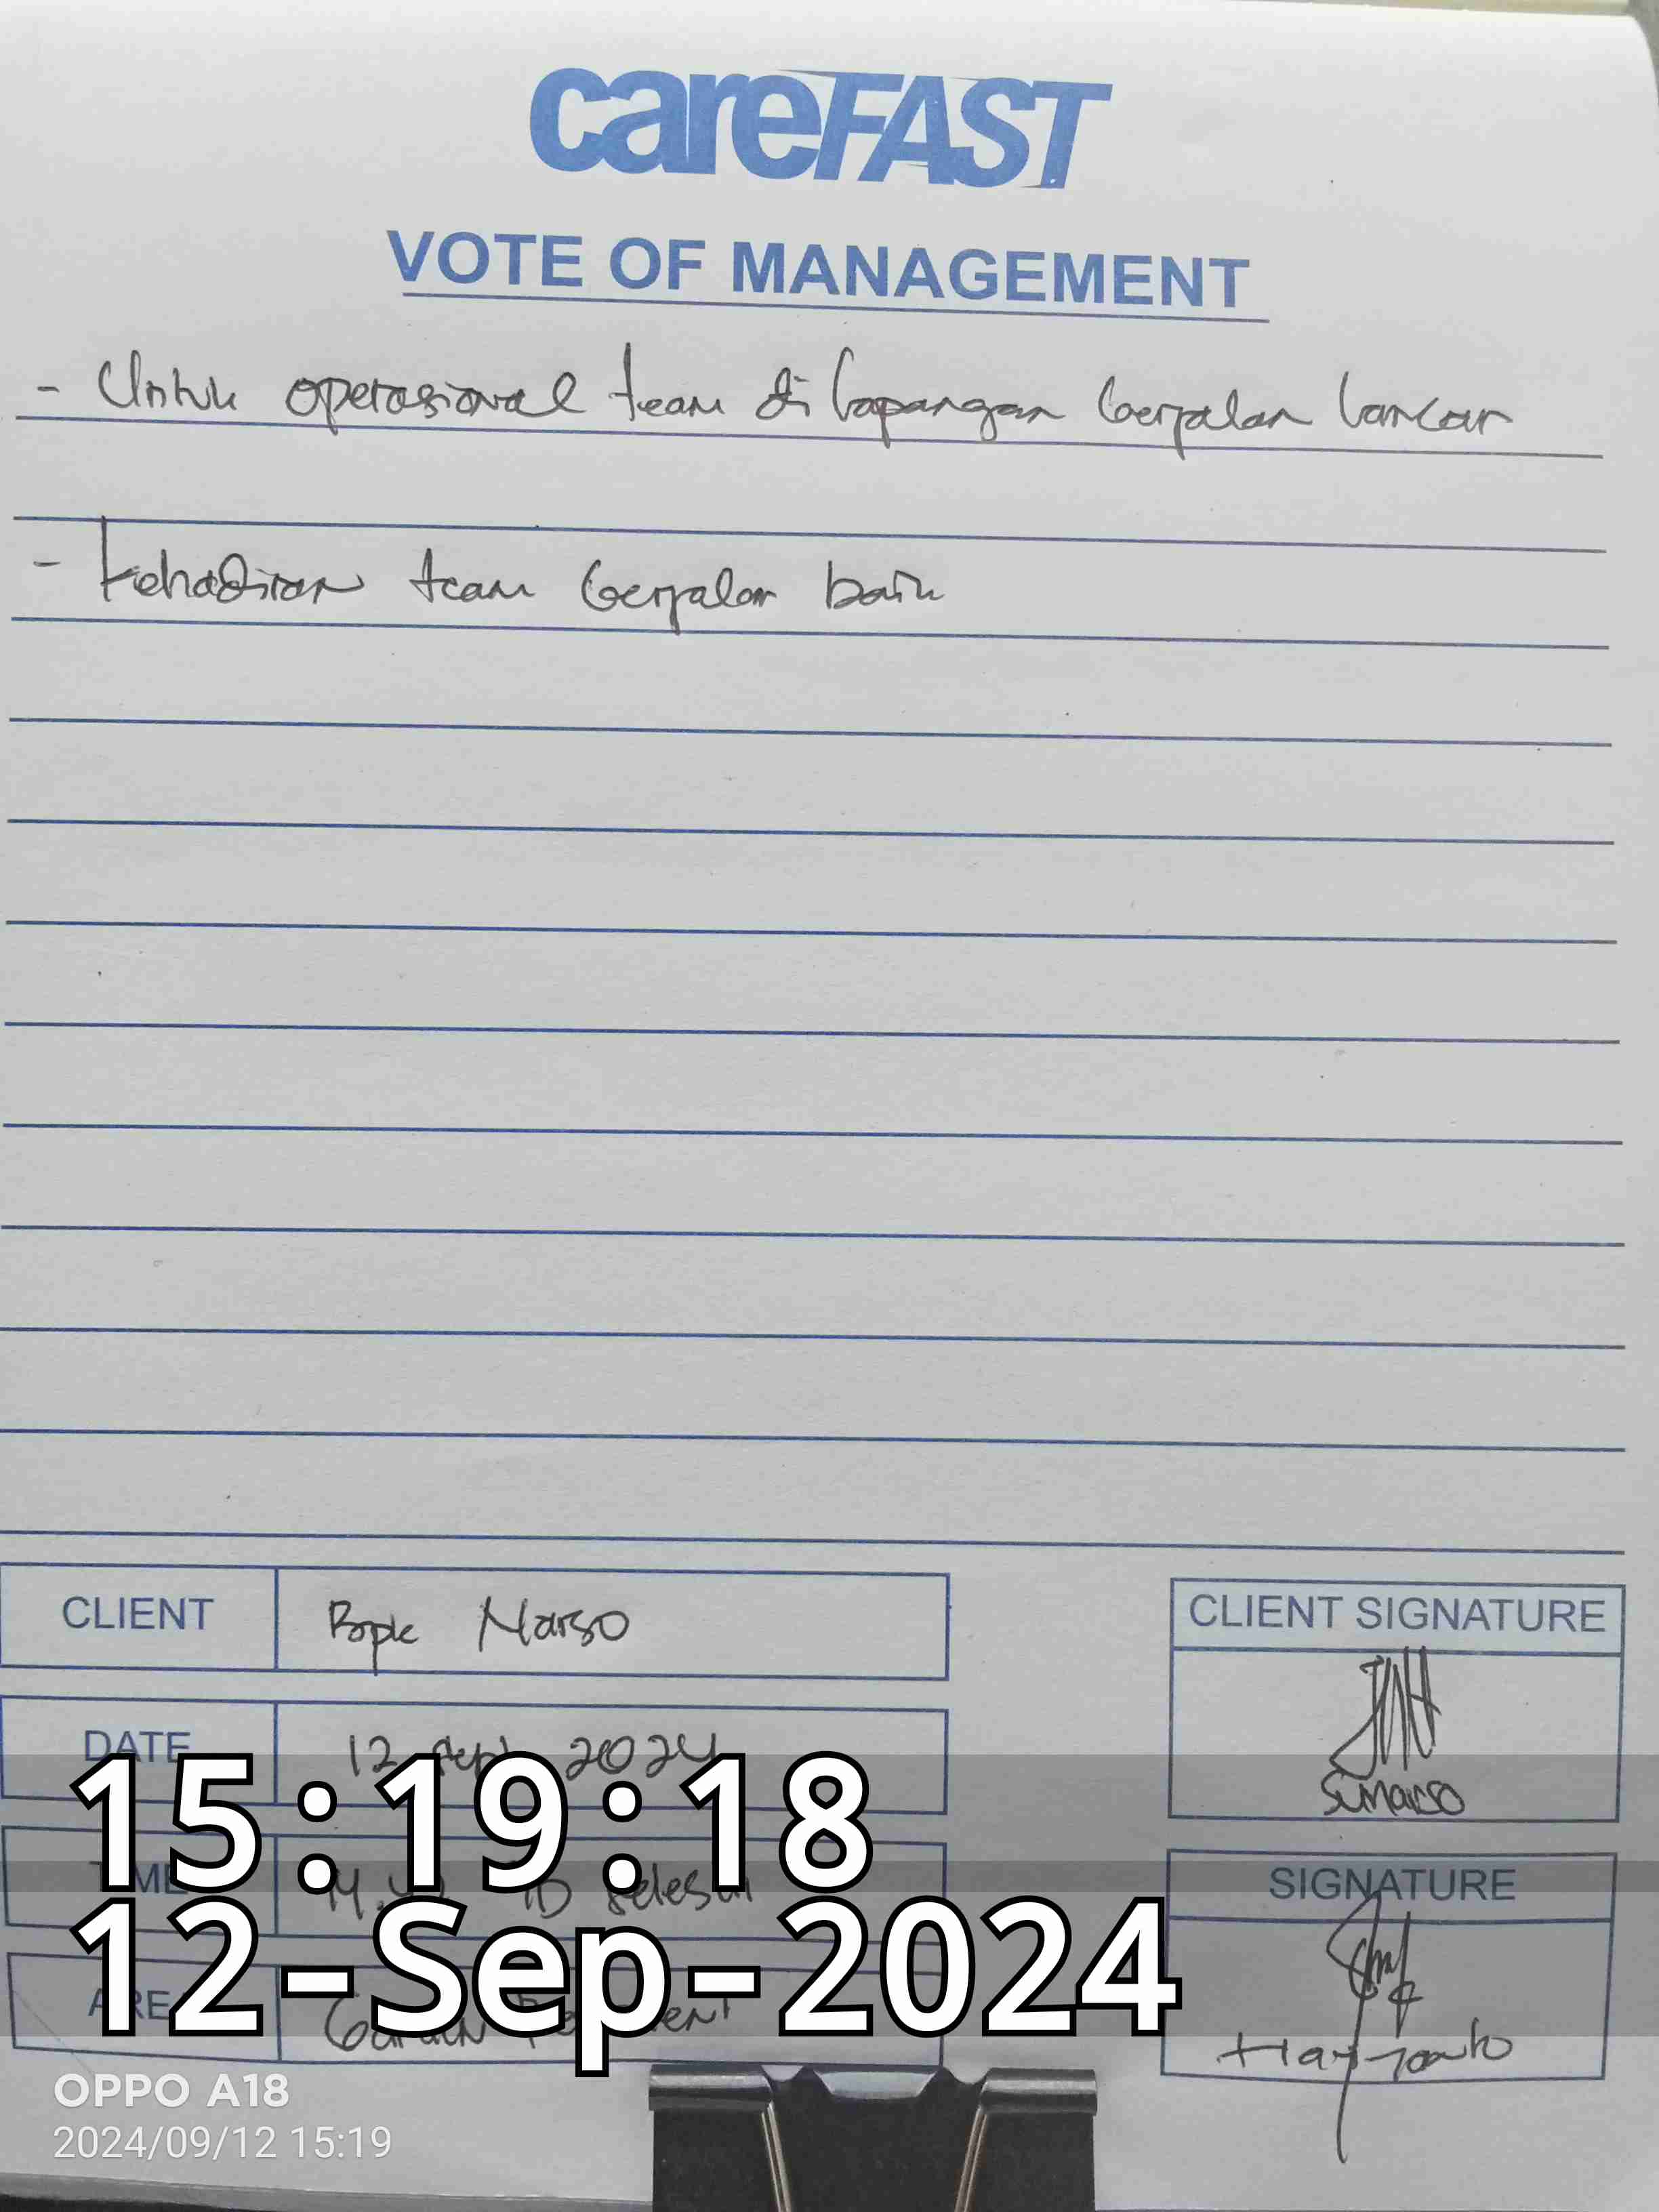 careFAST
VOTE OF MANAGEMENT
- Untuk operasional team di lapangan berjalan lancar
- kehadiran team berjalan baik
CLIENT
Bapk Narso
CLIENT SIGNATURE
Sunarso
DATE
12 Sept 2024
15:19:18
TIME
SD selesai
SIGNATURE
12-Sep-2024
AREA
Haryanto
OPPO A18
2024/09/12 15:19